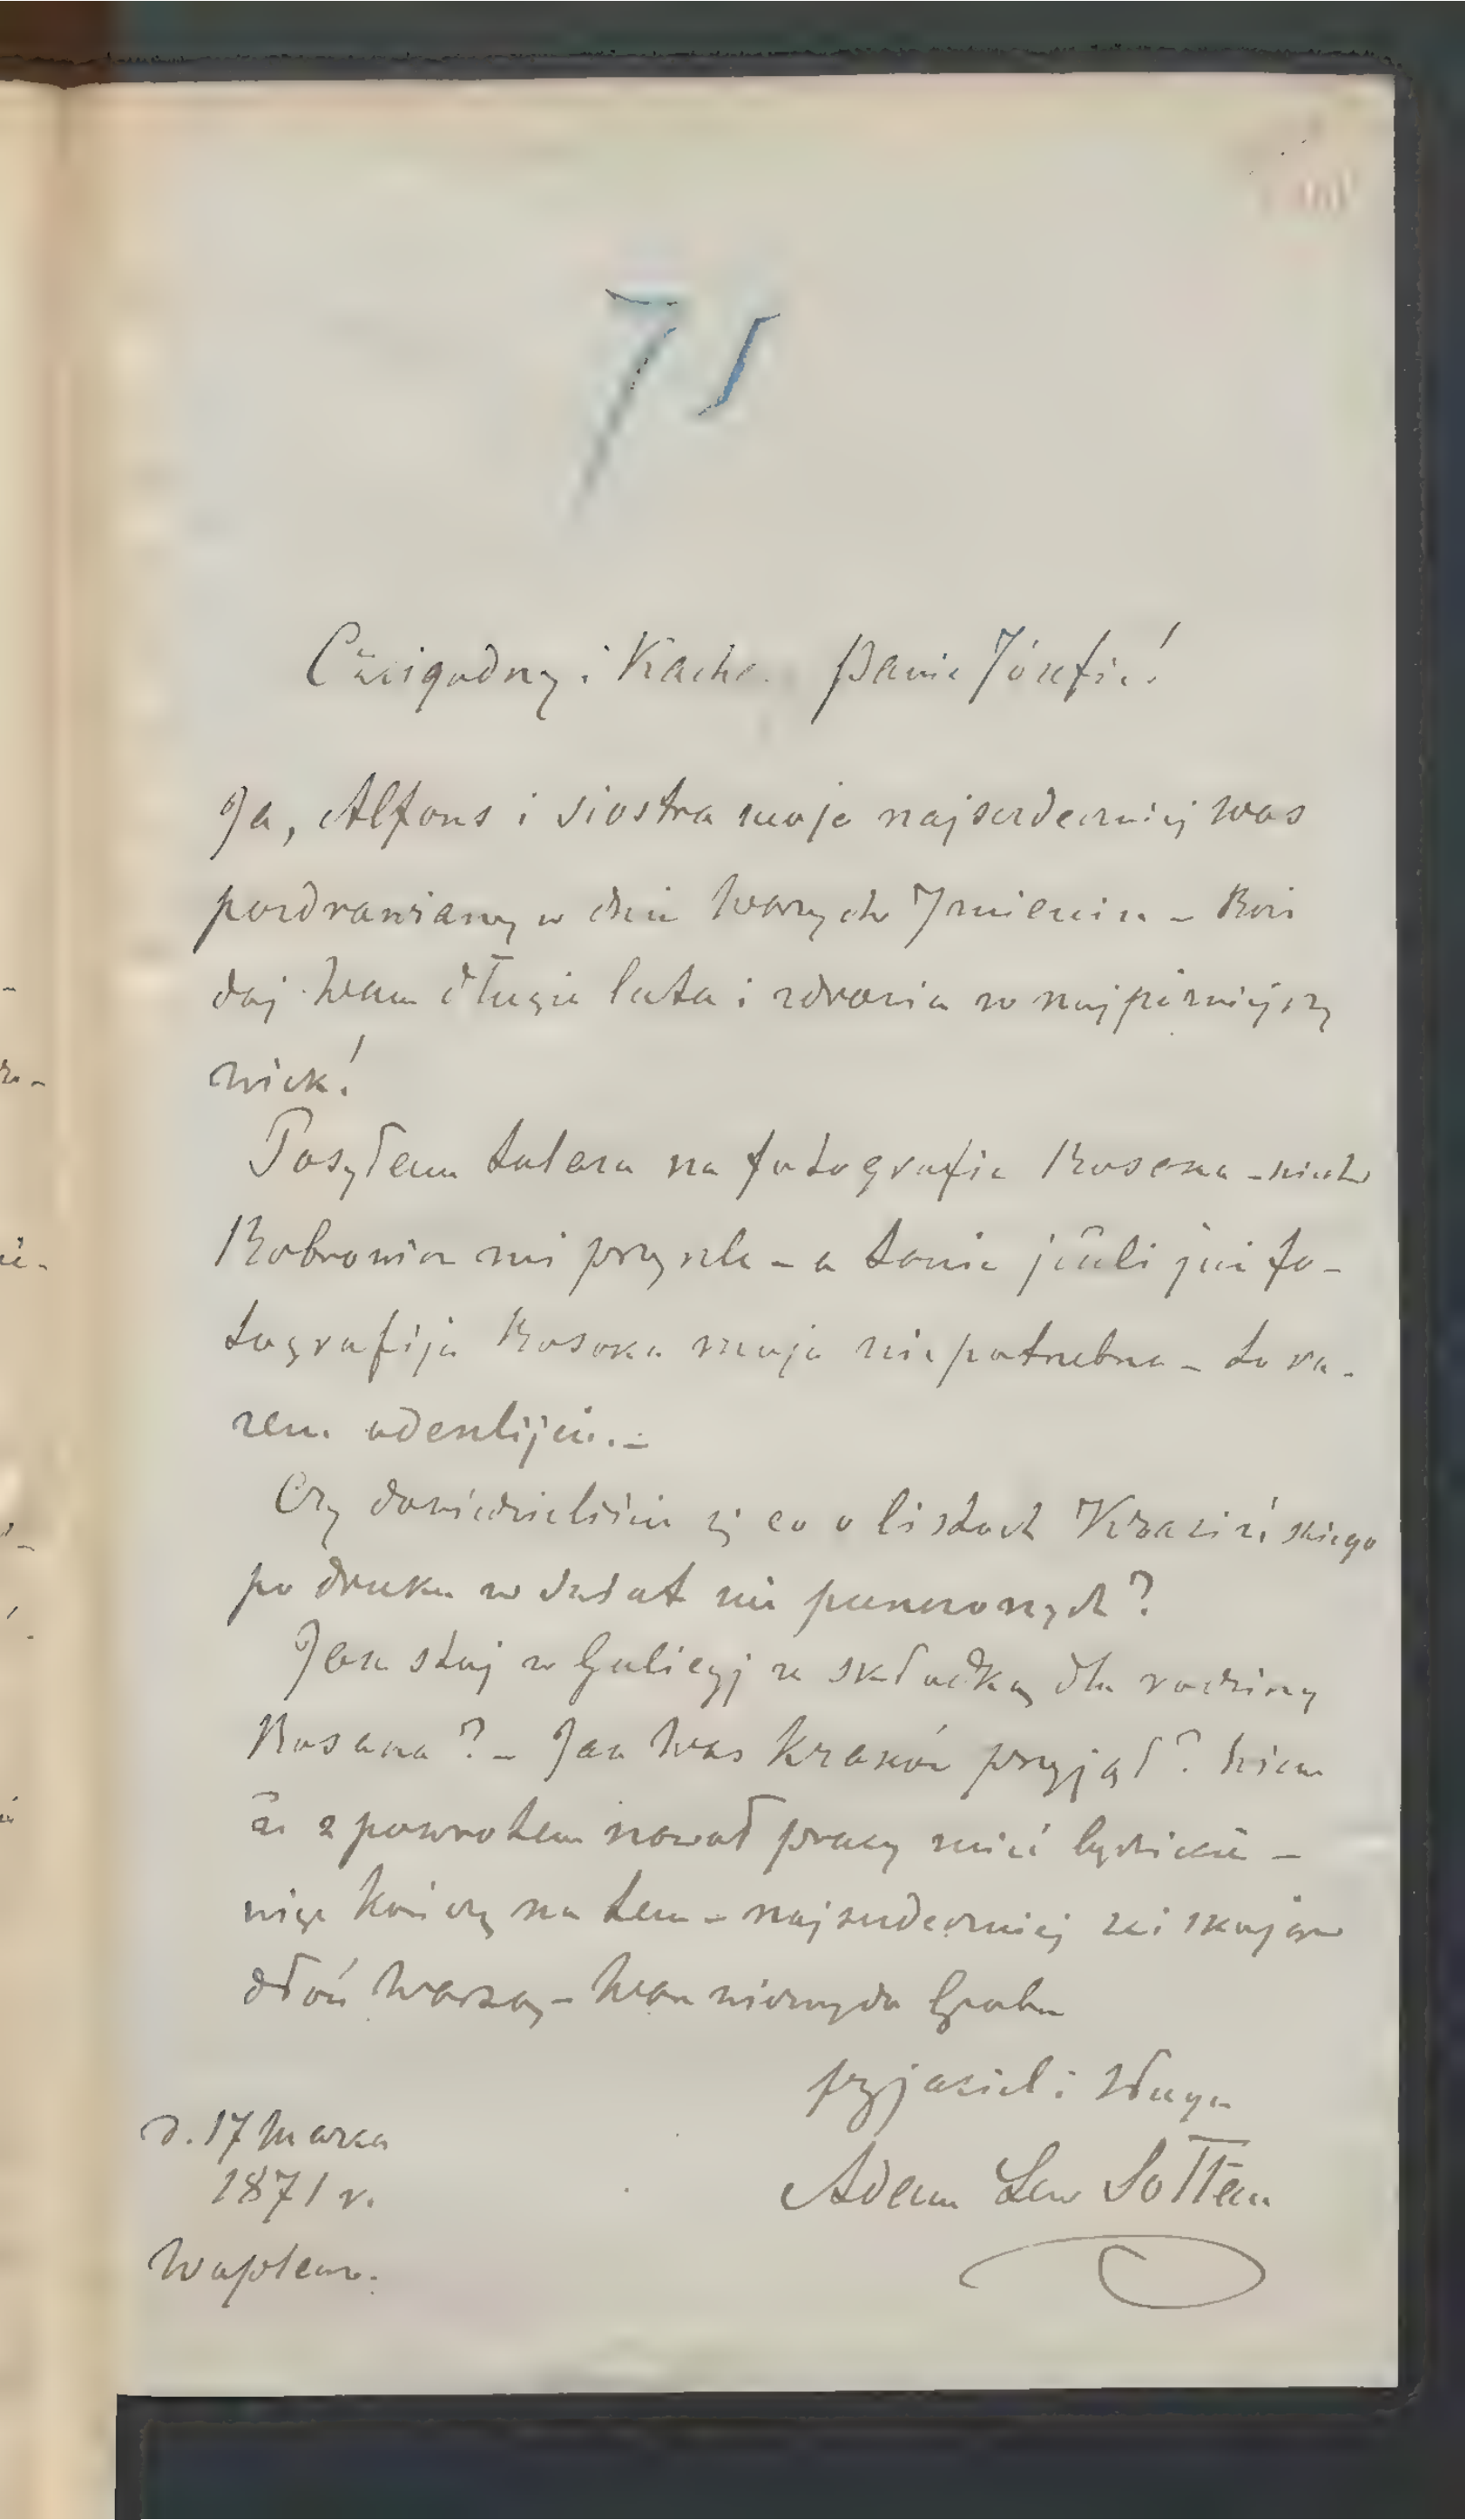 75
Czcigodny i Kocha. Panie Józefie!
Ja, Alfons i siostra moja najserdeczniej was
pozdrawiamy w dniu Waszych Jmienin – Boże
daj Wam długie lata i zdrowie w najpóźniejszy
wiek!
Posyłam talara na fotografie Bosaka – niech
Bobrowicz mi przyszle – a Łonie jeżeli już fo-
tografija Bosaka moja niepotrzebna – to ra-
zem odeszlijcie. –
Czy dowiedzieliście się co o listach Krasińskiego
po druku w świat nie puszczonych?
Jak stoj w Galicyj ze składką dla rodziny
Bosaka? – Jak Was Kraków przyjął? Wiem
że z powrotem nawał pracy mieć będziecie –
więc kończę na tem – najserdeczniej ściskając
dłoń Waszą – Wam wieczny do Grobu
przyjaciel i sługa
Adam Lew Sołtan
d. 17 Marca
1871 r.
Waplewo.